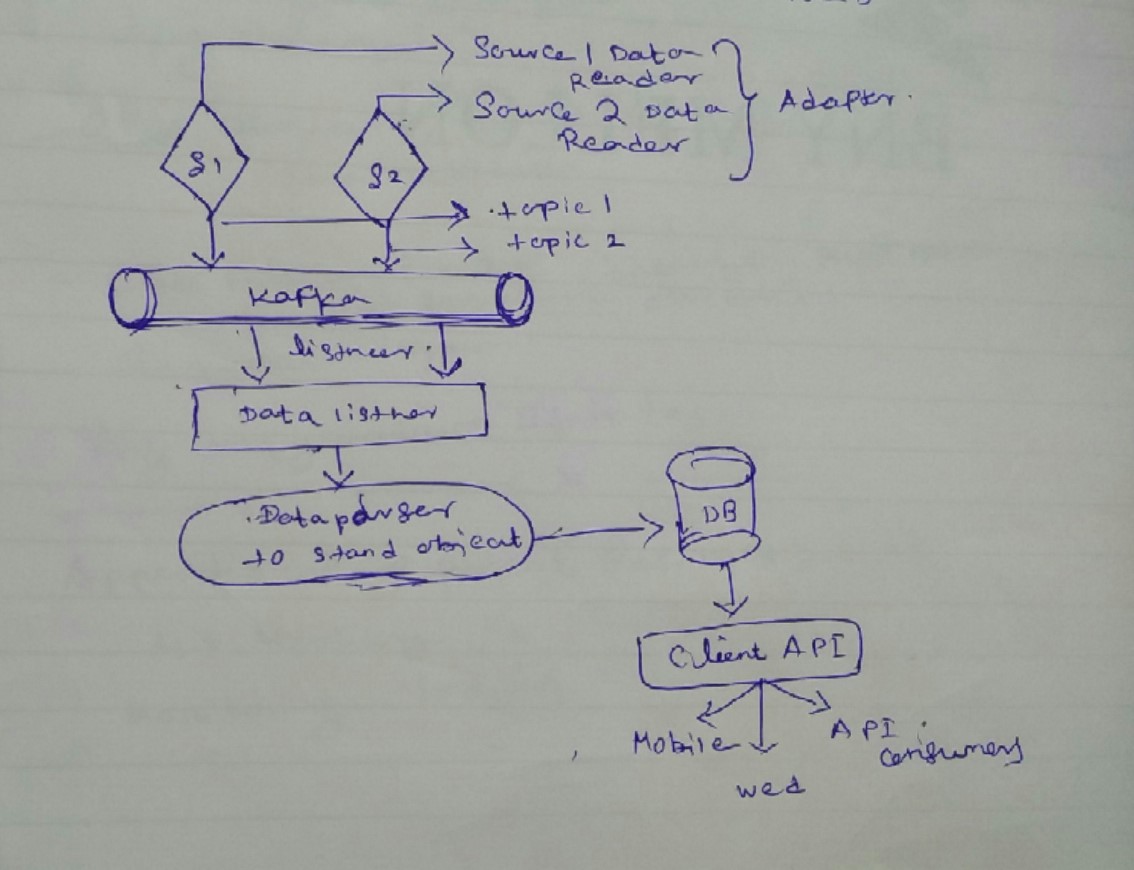 Source 1 Data
Reader
Source 2 Data
Reader
Adapter.
S1
S2
topic 1
topic 2
Kafka
listneer
Data listner
Dataparser
to stand object
DB
Client API
Mobile
API
consumers
wed